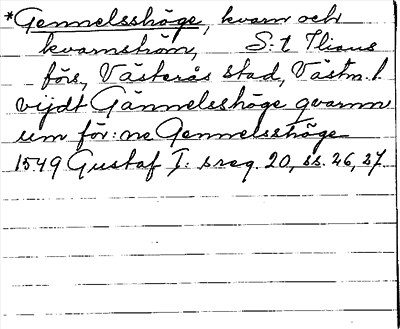 *Gemmelsshöge, kvarn och
kvarnström, S:t Ilians
förs, Västerås stad, Västm. l.
vijdt Gämmelsshöge qvarnn
um för:ne Gemmelsshöge
1549 Gustaf I: s reg. 20, ss. 26, 27.